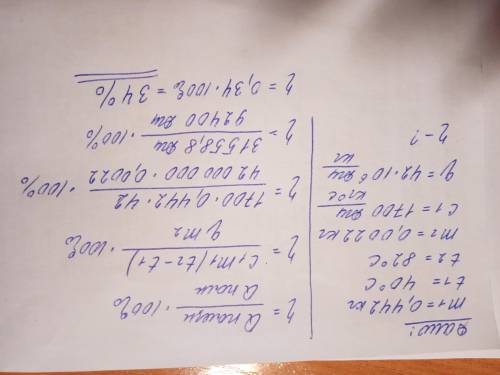 Дано:
m₁=0,442 кг
t₁ = 40°C
t₂ = 82°C
m₂=0,0022 кг
c₁ = 1700 Дж/кг°C
q = 42·10⁶ Дж/кг
η - ?
η = Q полезн / Q полн · 100%
η = c₁m₁(t₂-t₁) / q m₂ · 100%
η = 1700·0,442·42 / 42 000 000 · 0,0022 · 100%
η = 31558,8 Дж / 92400 Дж · 100%
η = 0,34·100% = 34%